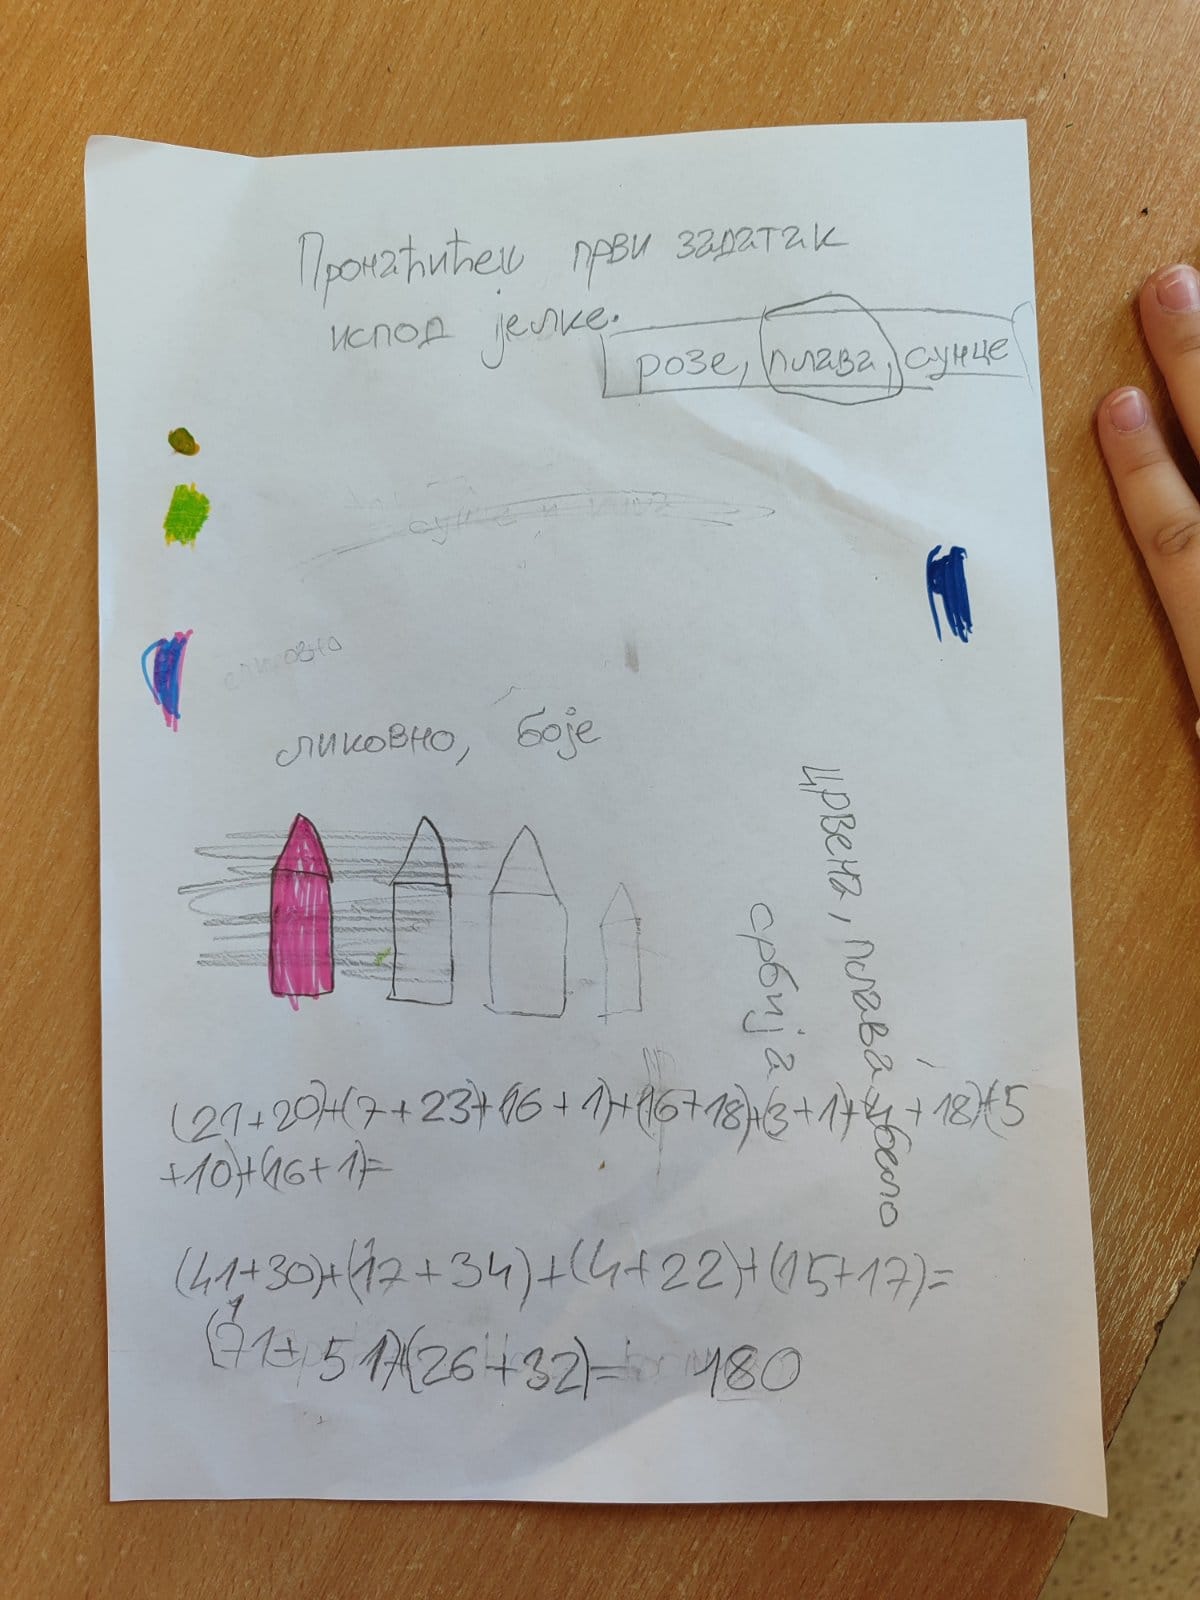 Пронаћићеш први задатак
испод јелке.
розе, плава, сунце
ликовно
ликовно, боје
црвена, плава, бело
србија
(21+20)+(7+23)+(16+1)+(16+18)+(3+1)+(4+18)+(5
+10)+(16+1)=
(41+30)+(17+34)+(4+22)+(15+17)=
(71+51)+(26+32)= 180